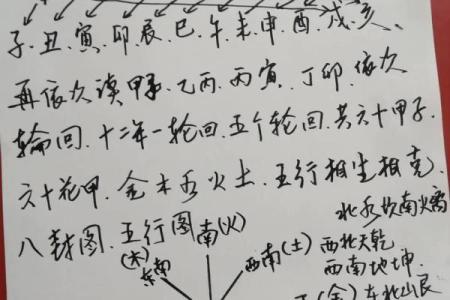 子、丑、寅、卯、辰、巳、午、未、申、酉、戌、亥、
再依次读甲子、乙丙、丙寅、丁卯、依次
轮回、十二年一轮回、五个轮回、共六十甲子、
六十花甲、金木水火土、五行相生相克
八封图、五行图
北水坎南火离
南(火)
(木)
东南
西南(土)
西北天乾
西南地坤
(金)东北山艮